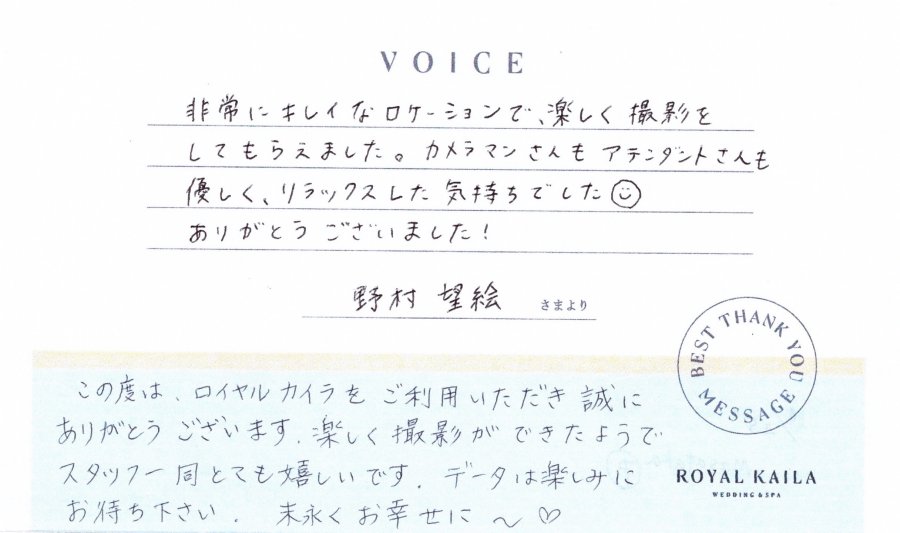 VOICE
非常にキレイなロケーションで、楽しく撮影を
してもらえました。カメラマンさんも アテンダントさんも
優しく、リラックスした気持ちでした☺
ありがとうございました！
野村 望絵 さまより
BEST THANK YOU MESSAGE
この度は、ロイヤルカイラをご利用いただき誠に
ありがとうございます。楽しく撮影ができたようで
スタッフ一同とても嬉しいです。データは楽しみに
お待ち下さい。 末永くお幸せに〜♡
ROYAL KAILA
WEDDING & SPA